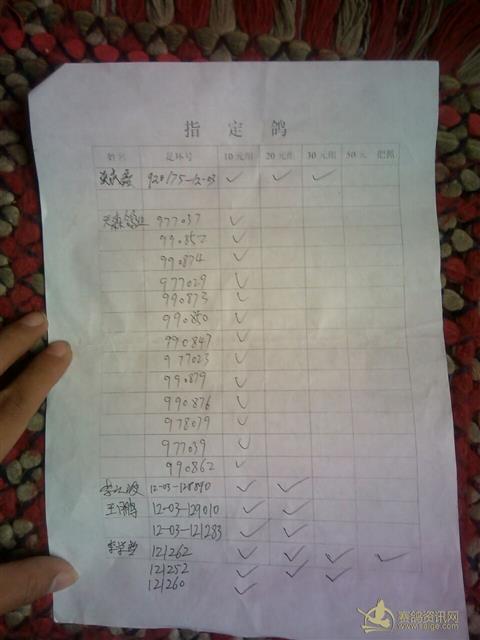 指定鸽
姓名 足环号 10元组 20元组 30元组 50元
920175-12-03 ✓ ✓ ✓
977037 ✓
990852 ✓
990874 ✓
977029 ✓
990873 ✓
990850 ✓
990847 ✓
977023 ✓
990879 ✓
990876 ✓
978079 ✓
977039 ✓
990862 ✓
12-03-128890 ✓ ✓
王 12-03-129010 ✓ ✓
12-03-121283 ✓ ✓
李 121262 ✓ ✓ ✓ ✓
121252 ✓ ✓ ✓
121260 ✓
赛鸽资讯网
www.saige.com